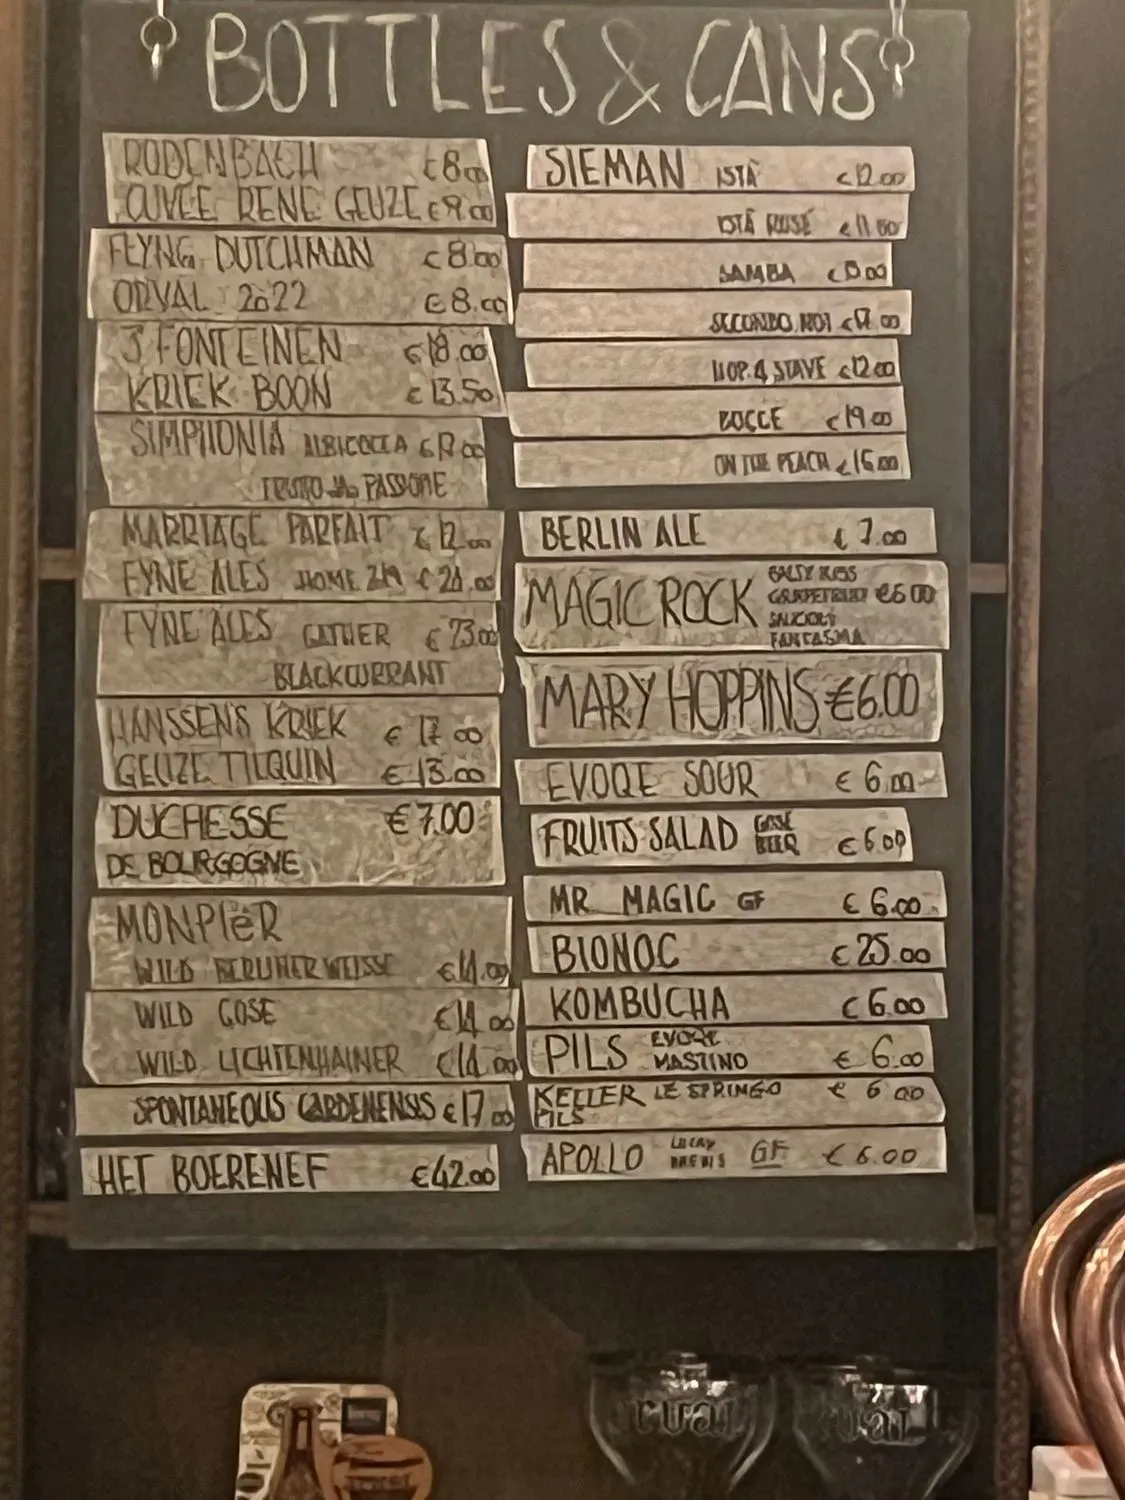 BOTTLES & CANS
RODENBACH €8.00
CUVÉE RENÉ GEUZE €9.00
FLYNG DUTCHMAN €8.00
ORVAL 2022 €8.00
3 FONTEINEN €18.00
KRIEK BOON €13.50
SIMPHONIA ALBICOCCA
FRUTTO della PASSIONE
MARRIAGE PARFAIT €12.00
FYNE ALES HOME
FYNE ALES GATHER €23.00
BLACKCURRANT
HANSSENS KRIEK €17.00
GEUZE TILQUIN €13.00
DUCHESSE €7.00
DE BOURGOGNE
MONPIER
WILD BERLINER WEISSE €14.00
WILD GOSE €14.00
WILD LICHTENHAINER €14.00
SPONTANEOUS GARDENENSIS €17.00
HET BOERENEF €42.00
SIEMAN ISTÀ €12.00
ISTÀ ROSÉ
SAMBA
SECONDO NOI
HOP 4 STAVE €12.00
BOCCE €19.00
ON THE PEACH €16.00
BERLIN ALE €7.00
MAGIC ROCK SALTY KISS
GRAPEFRUIT €6.00
FANTASMA
MARY HOPPINS €6.00
EVOQE SOUR €6.00
FRUITS SALAD GOSE
BEER €6.00
MR MAGIC GF €6.00
BIONOC €25.00
KOMBUCHA €6.00
PILS EVOQE
MASTINO €6.00
KELLER LE SPRINGO €6.00
PILS
APOLLO GF €6.00